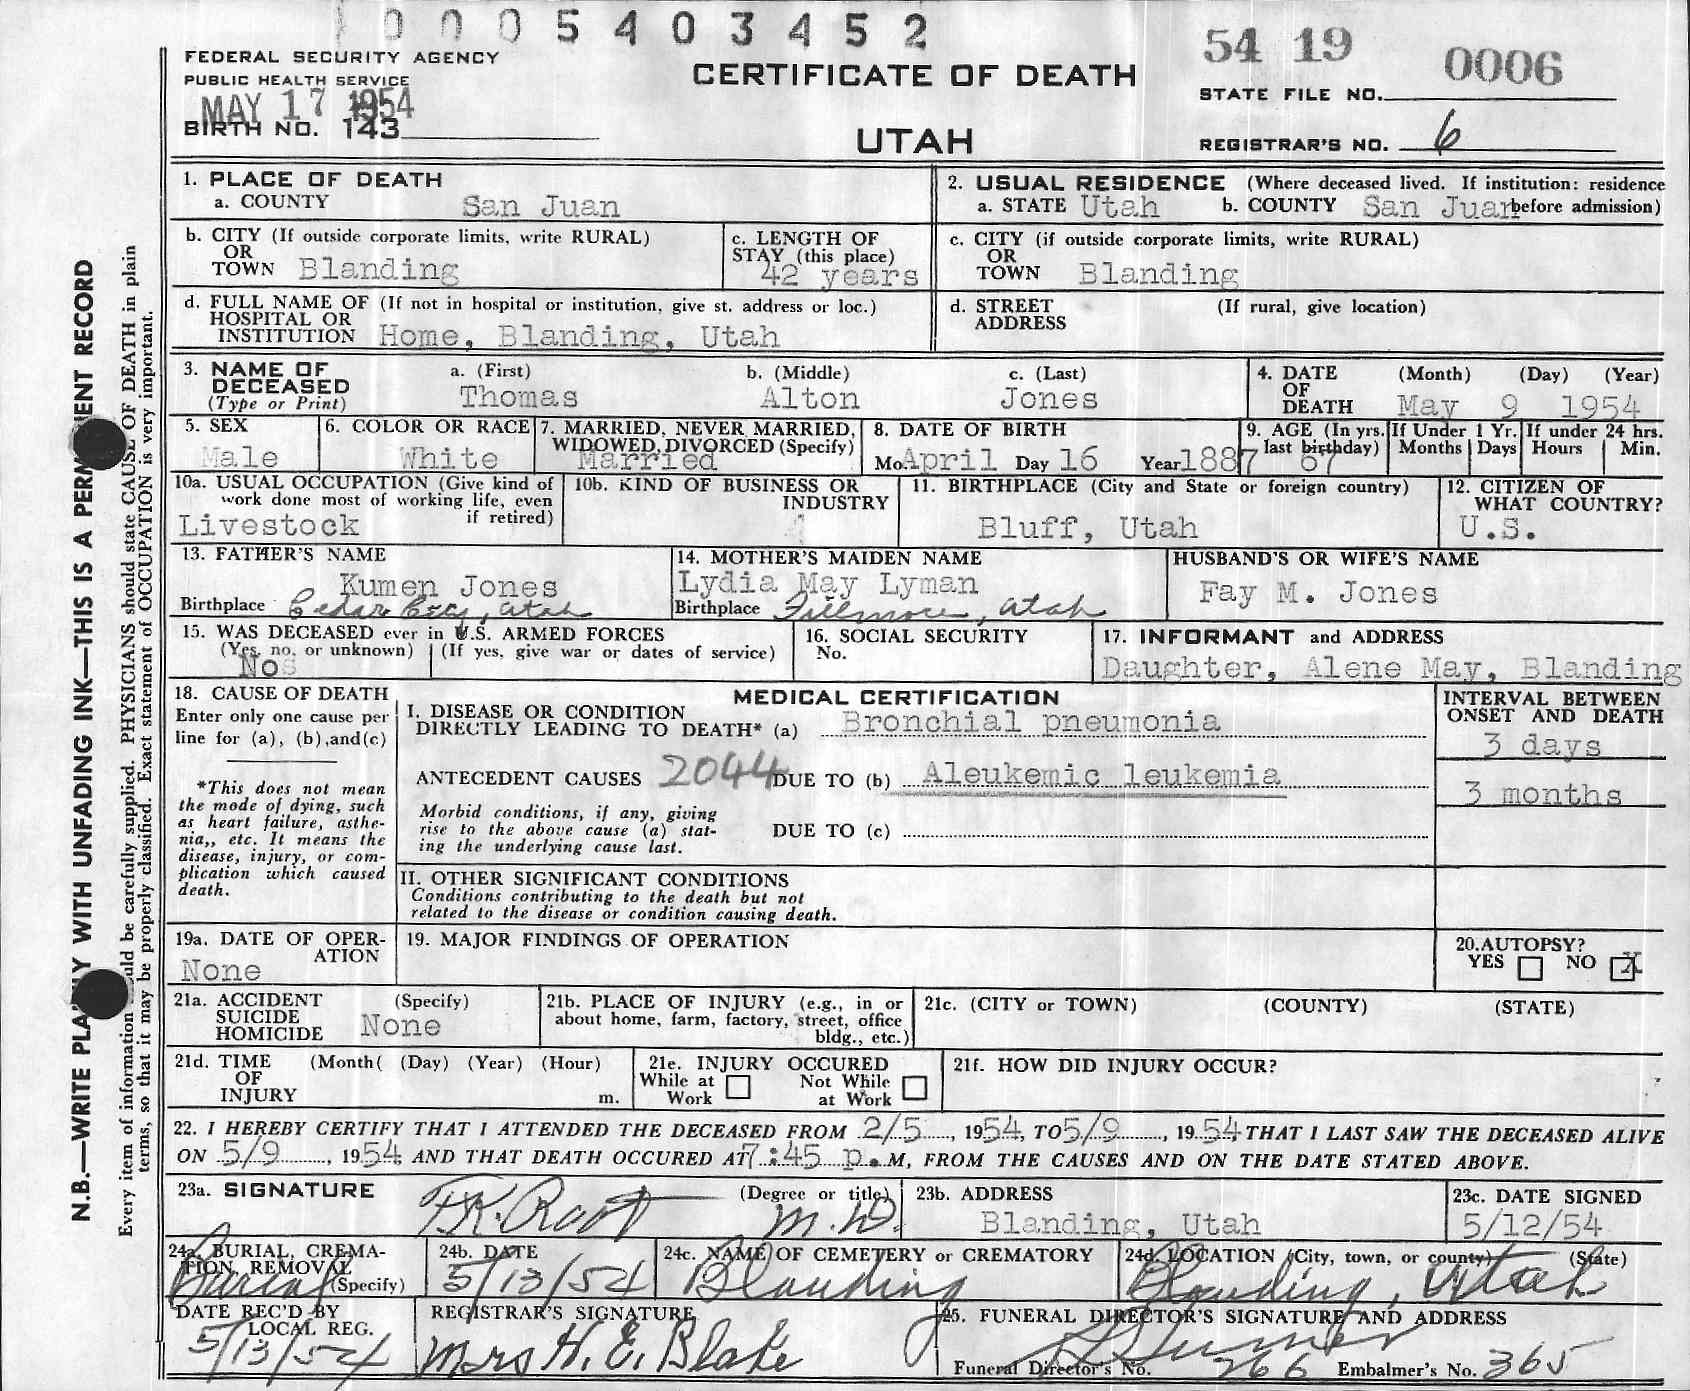 0005403452
FEDERAL SECURITY AGENCY
PUBLIC HEALTH SERVICE
MAY 17 1954
BIRTH NO. 143
CERTIFICATE OF DEATH
UTAH
54 19 0006
STATE FILE NO.
REGISTRAR'S NO. 6
N.B.—WRITE PLAINLY WITH UNFADING INK—THIS IS A PERMANENT RECORD
Every item of information should be carefully supplied. PHYSICIANS should state CAUSE OF DEATH in plain
terms, so that it may be properly classified. Exact statement of OCCUPATION is very important.
1. PLACE OF DEATH
a. COUNTY San Juan
2. USUAL RESIDENCE (Where deceased lived. If institution: residence
a. STATE Utah b. COUNTY San Juan before admission)
b. CITY (If outside corporate limits, write RURAL)
OR
TOWN Blanding
c. LENGTH OF
STAY (this place)
42 years
c. CITY (if outside corporate limits, write RURAL)
OR
TOWN Blanding
d. FULL NAME OF (If not in hospital or institution, give st. address or loc.)
HOSPITAL OR
INSTITUTION Home, Blanding, Utah
d. STREET (If rural, give location)
ADDRESS
3. NAME OF
DECEASED
(Type or Print)
a. (First)
Thomas
b. (Middle)
Alton
c. (Last)
Jones
4. DATE (Month) (Day) (Year)
OF
DEATH May 9 1954
5. SEX
Male
6. COLOR OR RACE
White
7. MARRIED, NEVER MARRIED,
WIDOWED, DIVORCED (Specify)
Married
8. DATE OF BIRTH
Mo. April Day 16 Year 1887
9. AGE (In yrs.
last birthday)
67
If Under 1 Yr.
Months Days
If under 24 hrs.
Hours Min.
10a. USUAL OCCUPATION (Give kind of
work done most of working life, even
if retired)
Livestock
10b. KIND OF BUSINESS OR
INDUSTRY
11. BIRTHPLACE (City and State or foreign country)
Bluff, Utah
12. CITIZEN OF
WHAT COUNTRY?
U.S.
13. FATHER'S NAME
Kumen Jones
Birthplace Cedar City, Utah
14. MOTHER'S MAIDEN NAME
Lydia May Lyman
Birthplace Fillmore, Utah
HUSBAND'S OR WIFE'S NAME
Fay M. Jones
15. WAS DECEASED ever in U.S. ARMED FORCES
(Yes, no, or unknown) (If yes, give war or dates of service)
No
16. SOCIAL SECURITY
No.
17. INFORMANT and ADDRESS
Daughter, Alene May, Blanding
18. CAUSE OF DEATH
Enter only one cause per
line for (a), (b), and (c)
*This does not mean
the mode of dying, such
as heart failure, asthe-
nia,, etc. It means the
disease, injury, or com-
plication which caused
death.
MEDICAL CERTIFICATION
I. DISEASE OR CONDITION
DIRECTLY LEADING TO DEATH* (a) Bronchial pneumonia
ANTECEDENT CAUSES 2044 DUE TO (b) Aleukemic leukemia
Morbid conditions, if any, giving
rise to the above cause (a) stat-
ing the underlying cause last.
DUE TO (c)
INTERVAL BETWEEN
ONSET AND DEATH
3 days
3 months
II. OTHER SIGNIFICANT CONDITIONS
Conditions contributing to the death but not
related to the disease or condition causing death.
19a. DATE OF OPER-
ATION
None
19. MAJOR FINDINGS OF OPERATION
20. AUTOPSY?
YES NO X
21a. ACCIDENT (Specify)
SUICIDE
HOMICIDE None
21b. PLACE OF INJURY (e.g., in or
about home, farm, factory, street, office
bldg., etc.)
21c. (CITY or TOWN) (COUNTY) (STATE)
21d. TIME (Month( (Day) (Year) (Hour)
OF
INJURY m.
21e. INJURY OCCURED
While at Not While
Work at Work
21f. HOW DID INJURY OCCUR?
22. I HEREBY CERTIFY THAT I ATTENDED THE DECEASED FROM 2/5, 1954, TO 5/9, 1954 THAT I LAST SAW THE DECEASED ALIVE
ON 5/9, 1954, AND THAT DEATH OCCURED AT 7:45 p.M, FROM THE CAUSES AND ON THE DATE STATED ABOVE.
23a. SIGNATURE (Degree or title)
M.D.
23b. ADDRESS
Blanding, Utah
23c. DATE SIGNED
5/12/54
24a. BURIAL, CREMA-
TION, REMOVAL
(Specify)
Burial
24b. DATE
5/13/54
24c. NAME OF CEMETERY or CREMATORY
Blanding
24d. LOCATION (City, town, or county) (State)
Blanding, Utah
DATE REC'D BY
LOCAL REG.
5/13/54
REGISTRAR'S SIGNATURE
Mrs H. E. Blake
25. FUNERAL DIRECTOR'S SIGNATURE AND ADDRESS
Funeral Director's No. 266 Embalmer's No. 365